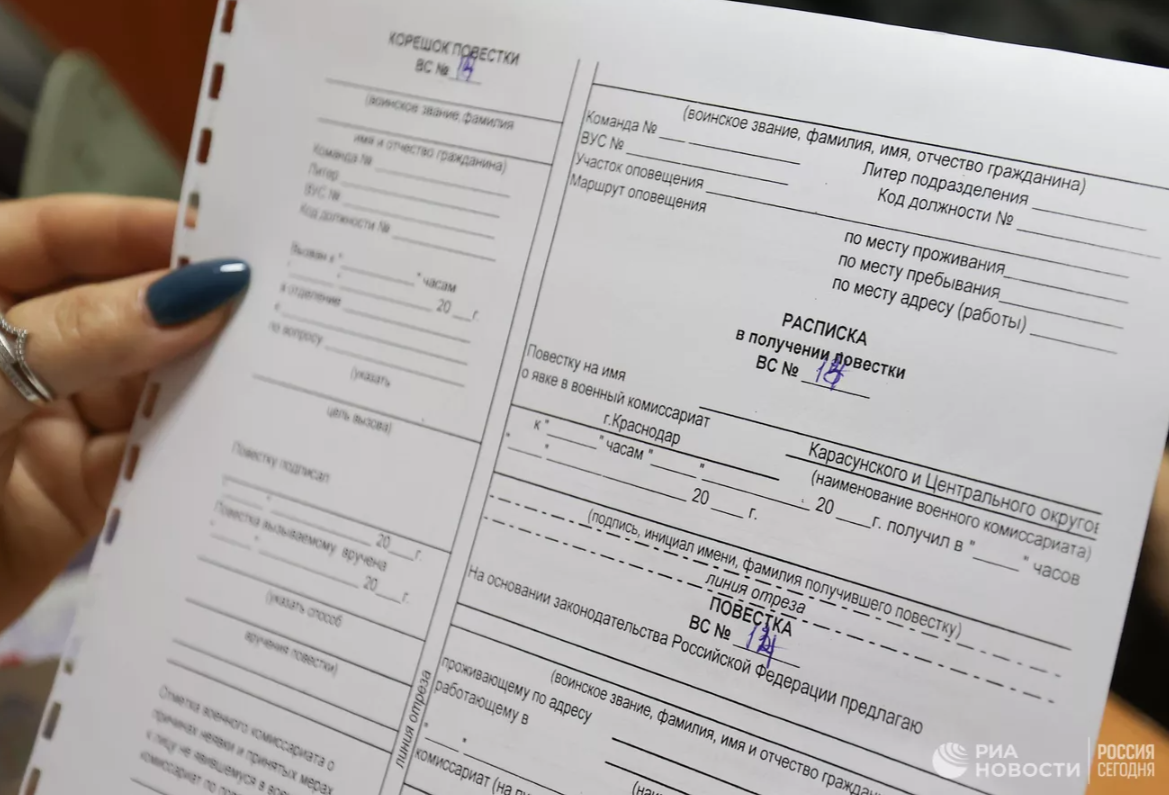 КОРЕШОК ПОВЕСТКИ
ВС №
(воинское звание, фамилия
имя и отчество гражданина)
Команда №
Литер
ВУС №
Код должности №
Вызван к " " часам
" " 20 г.
в отделение
к
по вопросу
(указать
цель вызова)
Повестку подписал
" " 20 г.
Повестка вызываемому вручена
" " 20 г.
(указать способ
вручения повестки)
Отметка военного комиссариата о
причинах неявки и принятых мерах
к лицу не явившемуся в
комиссариат по
линия отреза
(воинское звание, фамилия, имя, отчество гражданина)
Команда № Литер подразделения
ВУС № Код должности №
Участок оповещения
Маршрут оповещения
по месту проживания
по месту пребывания
по месту адресу (работы)
РАСПИСКА
в получении повестки
ВС №
Повестку на имя
о явке в военный комиссариат Карасунского и Центрального округов
г.Краснодар (наименование военного комиссариата)
к " " часам " " 20 г. получил в " " часов
" " 20 г.
(подпись, инициал имени, фамилия получившего повестку)
линия отреза
ПОВЕСТКА
ВС №
На основании законодательства Российской Федерации предлагаю
(воинское звание, фамилия, имя и отчество
проживающему по адресу
работающему в
" "
комиссариат (на
РИА НОВОСТИ
РОССИЯ СЕГОДНЯ